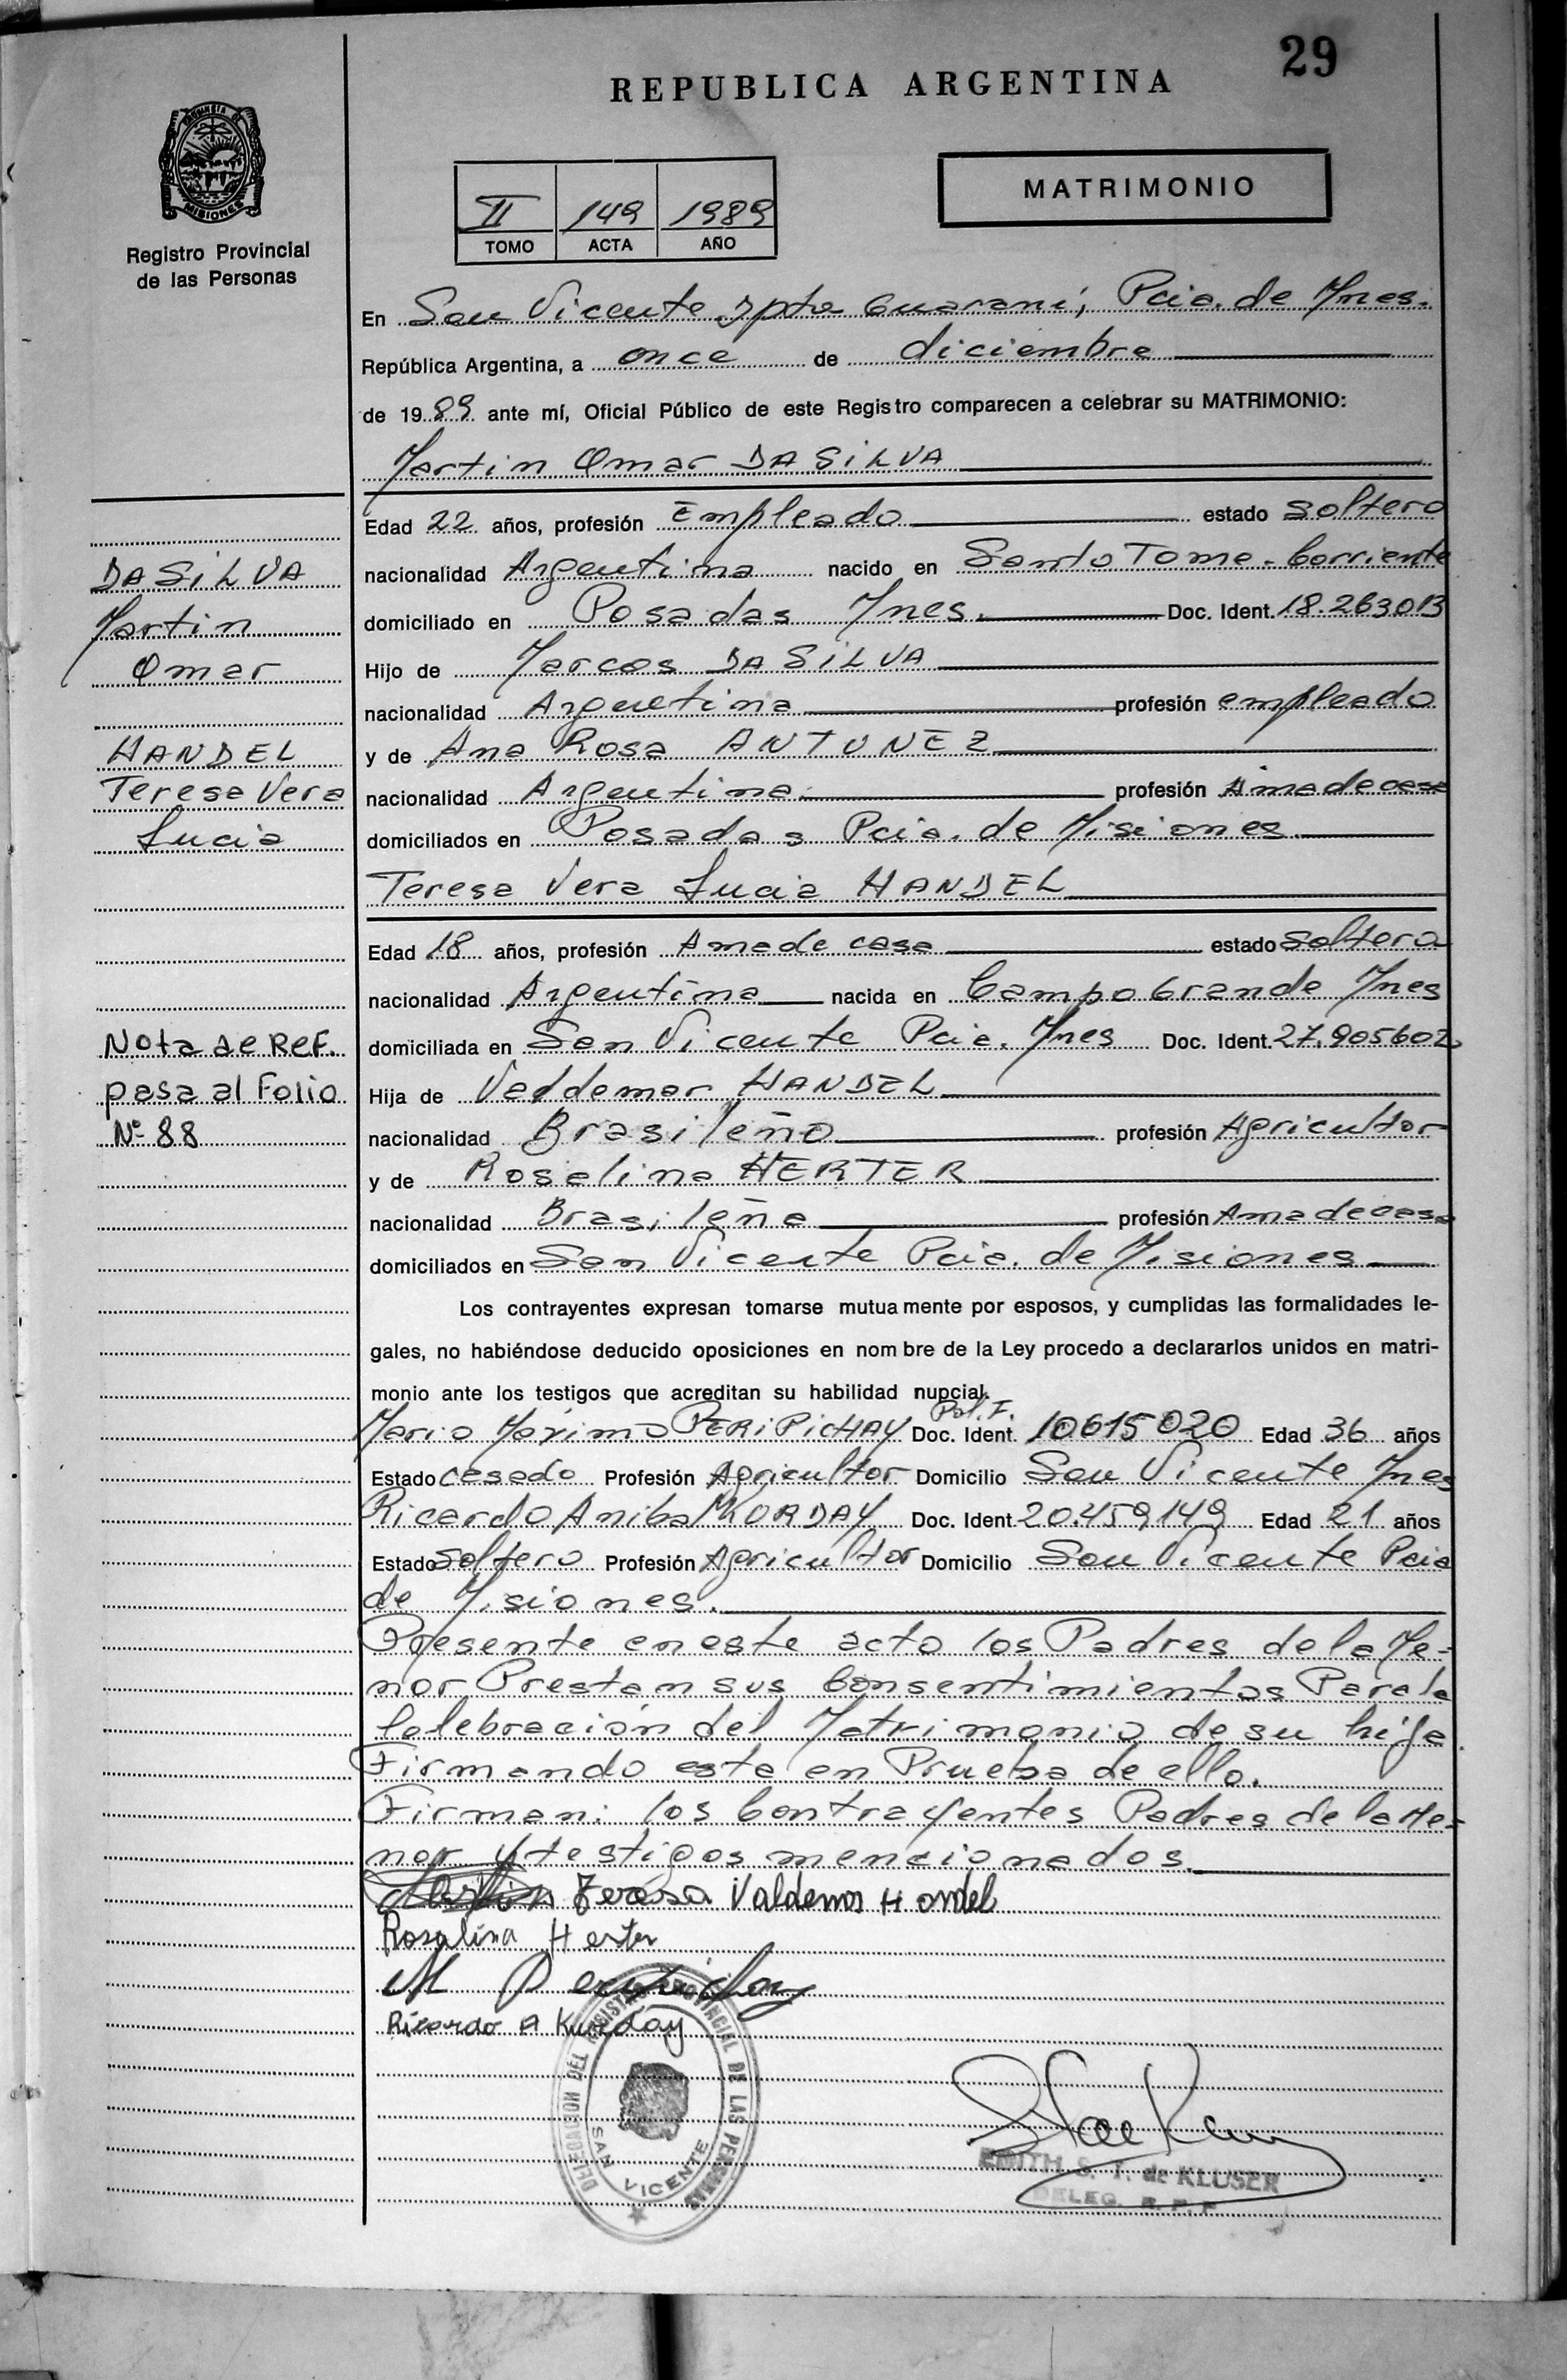 29
REPUBLICA ARGENTINA
PROVINCIA DE
MISIONES
Registro Provincial
de las Personas
II 149 1989
TOMO ACTA AÑO
MATRIMONIO
En San Vicente Dpto Guarani, Pcia. de Mnes.
República Argentina, a once de diciembre
de 1989 ante mí, Oficial Público de este Registro comparecen a celebrar su MATRIMONIO:
Martin Omar DA SILVA
Edad 22 años, profesión Empleado estado soltero
nacionalidad Argentina nacido en Santo Tome - Corriente
domiciliado en Posadas Mnes. Doc. Ident. 18.263013
Hijo de Marcos DA SILVA
nacionalidad Argentina profesión empleado
y de Ana Rosa ANTUNEZ
nacionalidad Argentina profesión Amadecasa
domiciliados en Posadas Pcia. de Misiones
Teresa Vera Lucia HANDEL
Edad 18 años, profesión Amade casa estado soltera
nacionalidad Argentina nacida en Campo Grande Mnes
domiciliada en San Vicente Pcia. Mnes Doc. Ident. 27.905602
Hija de Valdemar HANDEL
nacionalidad Brasileño profesión Agricultor
y de Roselina HERTER
nacionalidad Brasileña profesión Amadecasa
domiciliados en San Vicente Pcia. de Misiones
Los contrayentes expresan tomarse mutuamente por esposos, y cumplidas las formalidades le-
gales, no habiéndose deducido oposiciones en nombre de la Ley procedo a declararlos unidos en matri-
monio ante los testigos que acreditan su habilidad nupcial.
Pol. F.
Mario Maximo PERIPICHAY Doc. Ident. 10615020 Edad 36 años
Estado casado Profesión Agricultor Domicilio San Vicente Mnes
Ricardo Anibal KURDAY Doc. Ident. 20.459,149 Edad 21 años
Estado soltero Profesión Agricultor Domicilio San Vicente Pcia
de Misiones.
Presente en este acto los Padres de la Me-
nor Prestan sus Consentimientos Para la
Celebración del Matrimonio de su hija
Firmando esta en Prueba de ello.
Firman: los Contrayentes Padres de la Me-
nor y testigos mencionados.
Teresa Valdemos Handel
Rosalina Herter
Ricardo A Kurday
DELEGACION DEL REGISTRO PROVINCIAL DE LAS PERSONAS
SAN VICENTE
EDITH S. T. de KLUSER
DELEG. R. P. P
DA SILVA
Martin
Omar
HANDEL
Teresa Vera
Lucia
Nota de Ref.
pasa al Folio
Nº 88